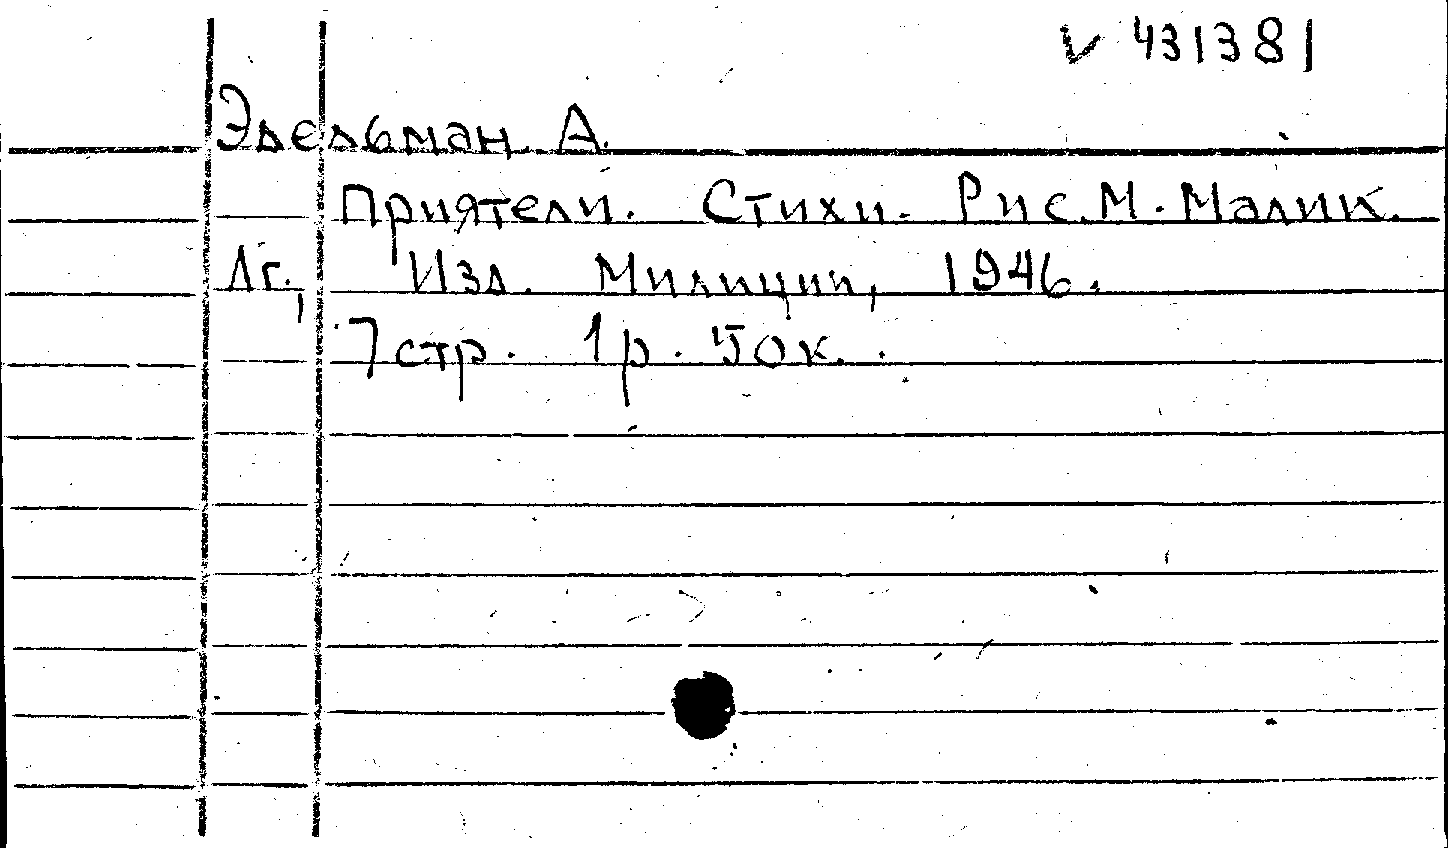 V 431381
Эдельман А.
Приятели. Стихи. Рис. М. Малик.
Лг., Изд. Милиции, 1946.
7 стр. 1 р. 50 к.